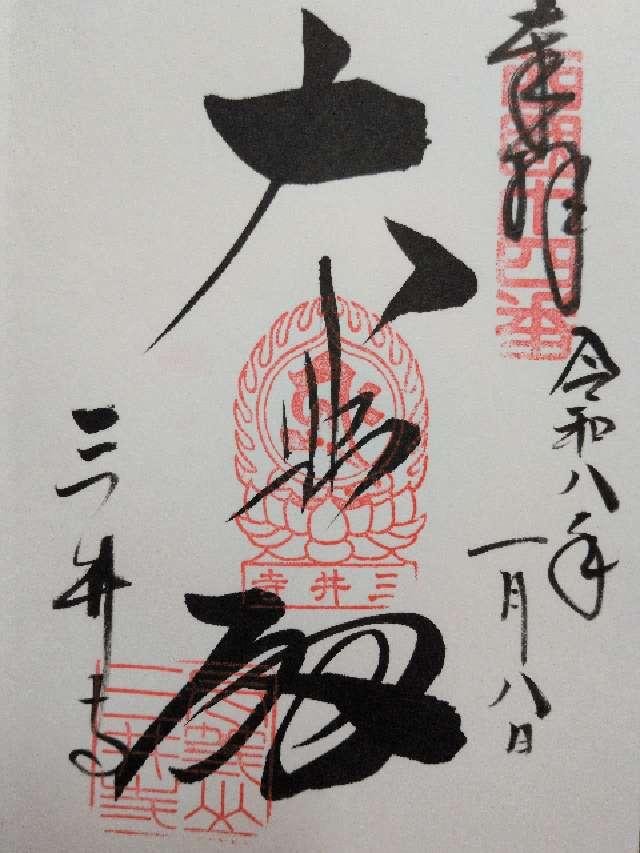 奉拝
西国十四番
令和八年
一月八日
大悲殿
三井寺
三井寺